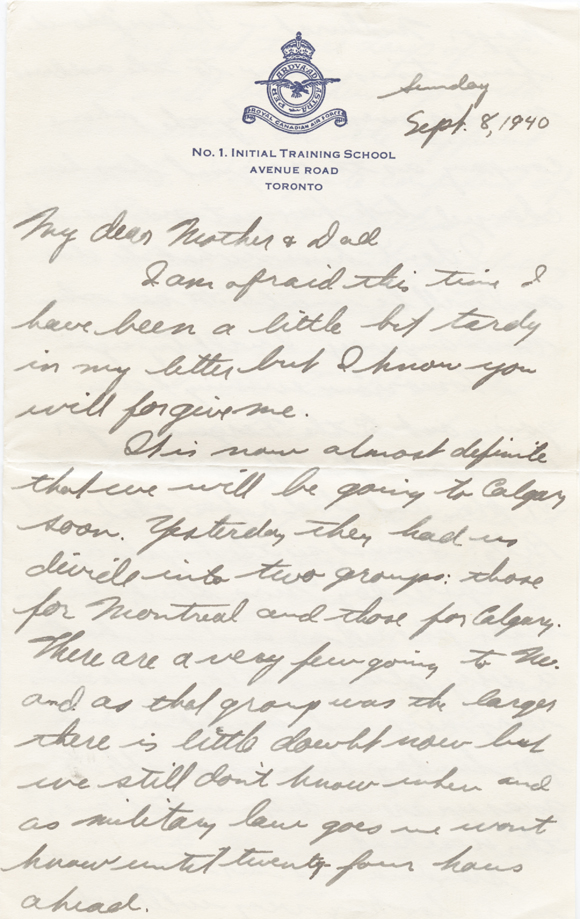 PER ARDUA AD ASTRA
ROYAL CANADIAN AIR FORCE
Sunday
Sept. 8, 1940
No. 1. Initial Training School
Avenue Road
Toronto
My dear Mother & Dad
I am afraid this time I
have been a little bit tardy
in my letter but I know you
will forgive me.
It is now almost definite
that we will be going to Calgary
soon. Yesterday they had us
divide into two groups: those
for Montreal and those for Calgary.
There are a very few going to
and as that group was the larger
there is little doubt now but
we still don't know when and
as military law goes we wont
know until twenty four hours
ahead.